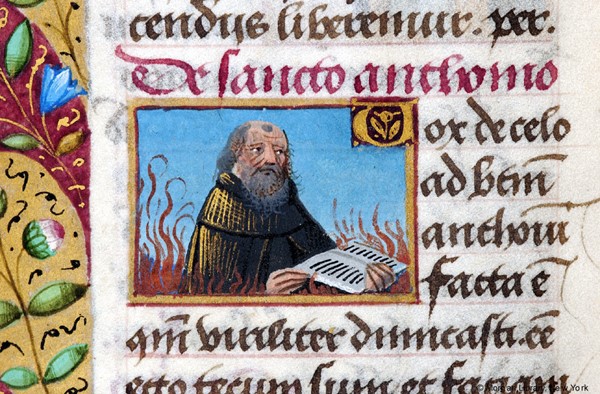 tendijs liberemur. per.
De sancto anthonio
Vox de celo
ad btm̄
anthoni
facta ē
qm̄ viriliter dimicasti.
ego tecum sum et faciam
© Morgan Library, New York